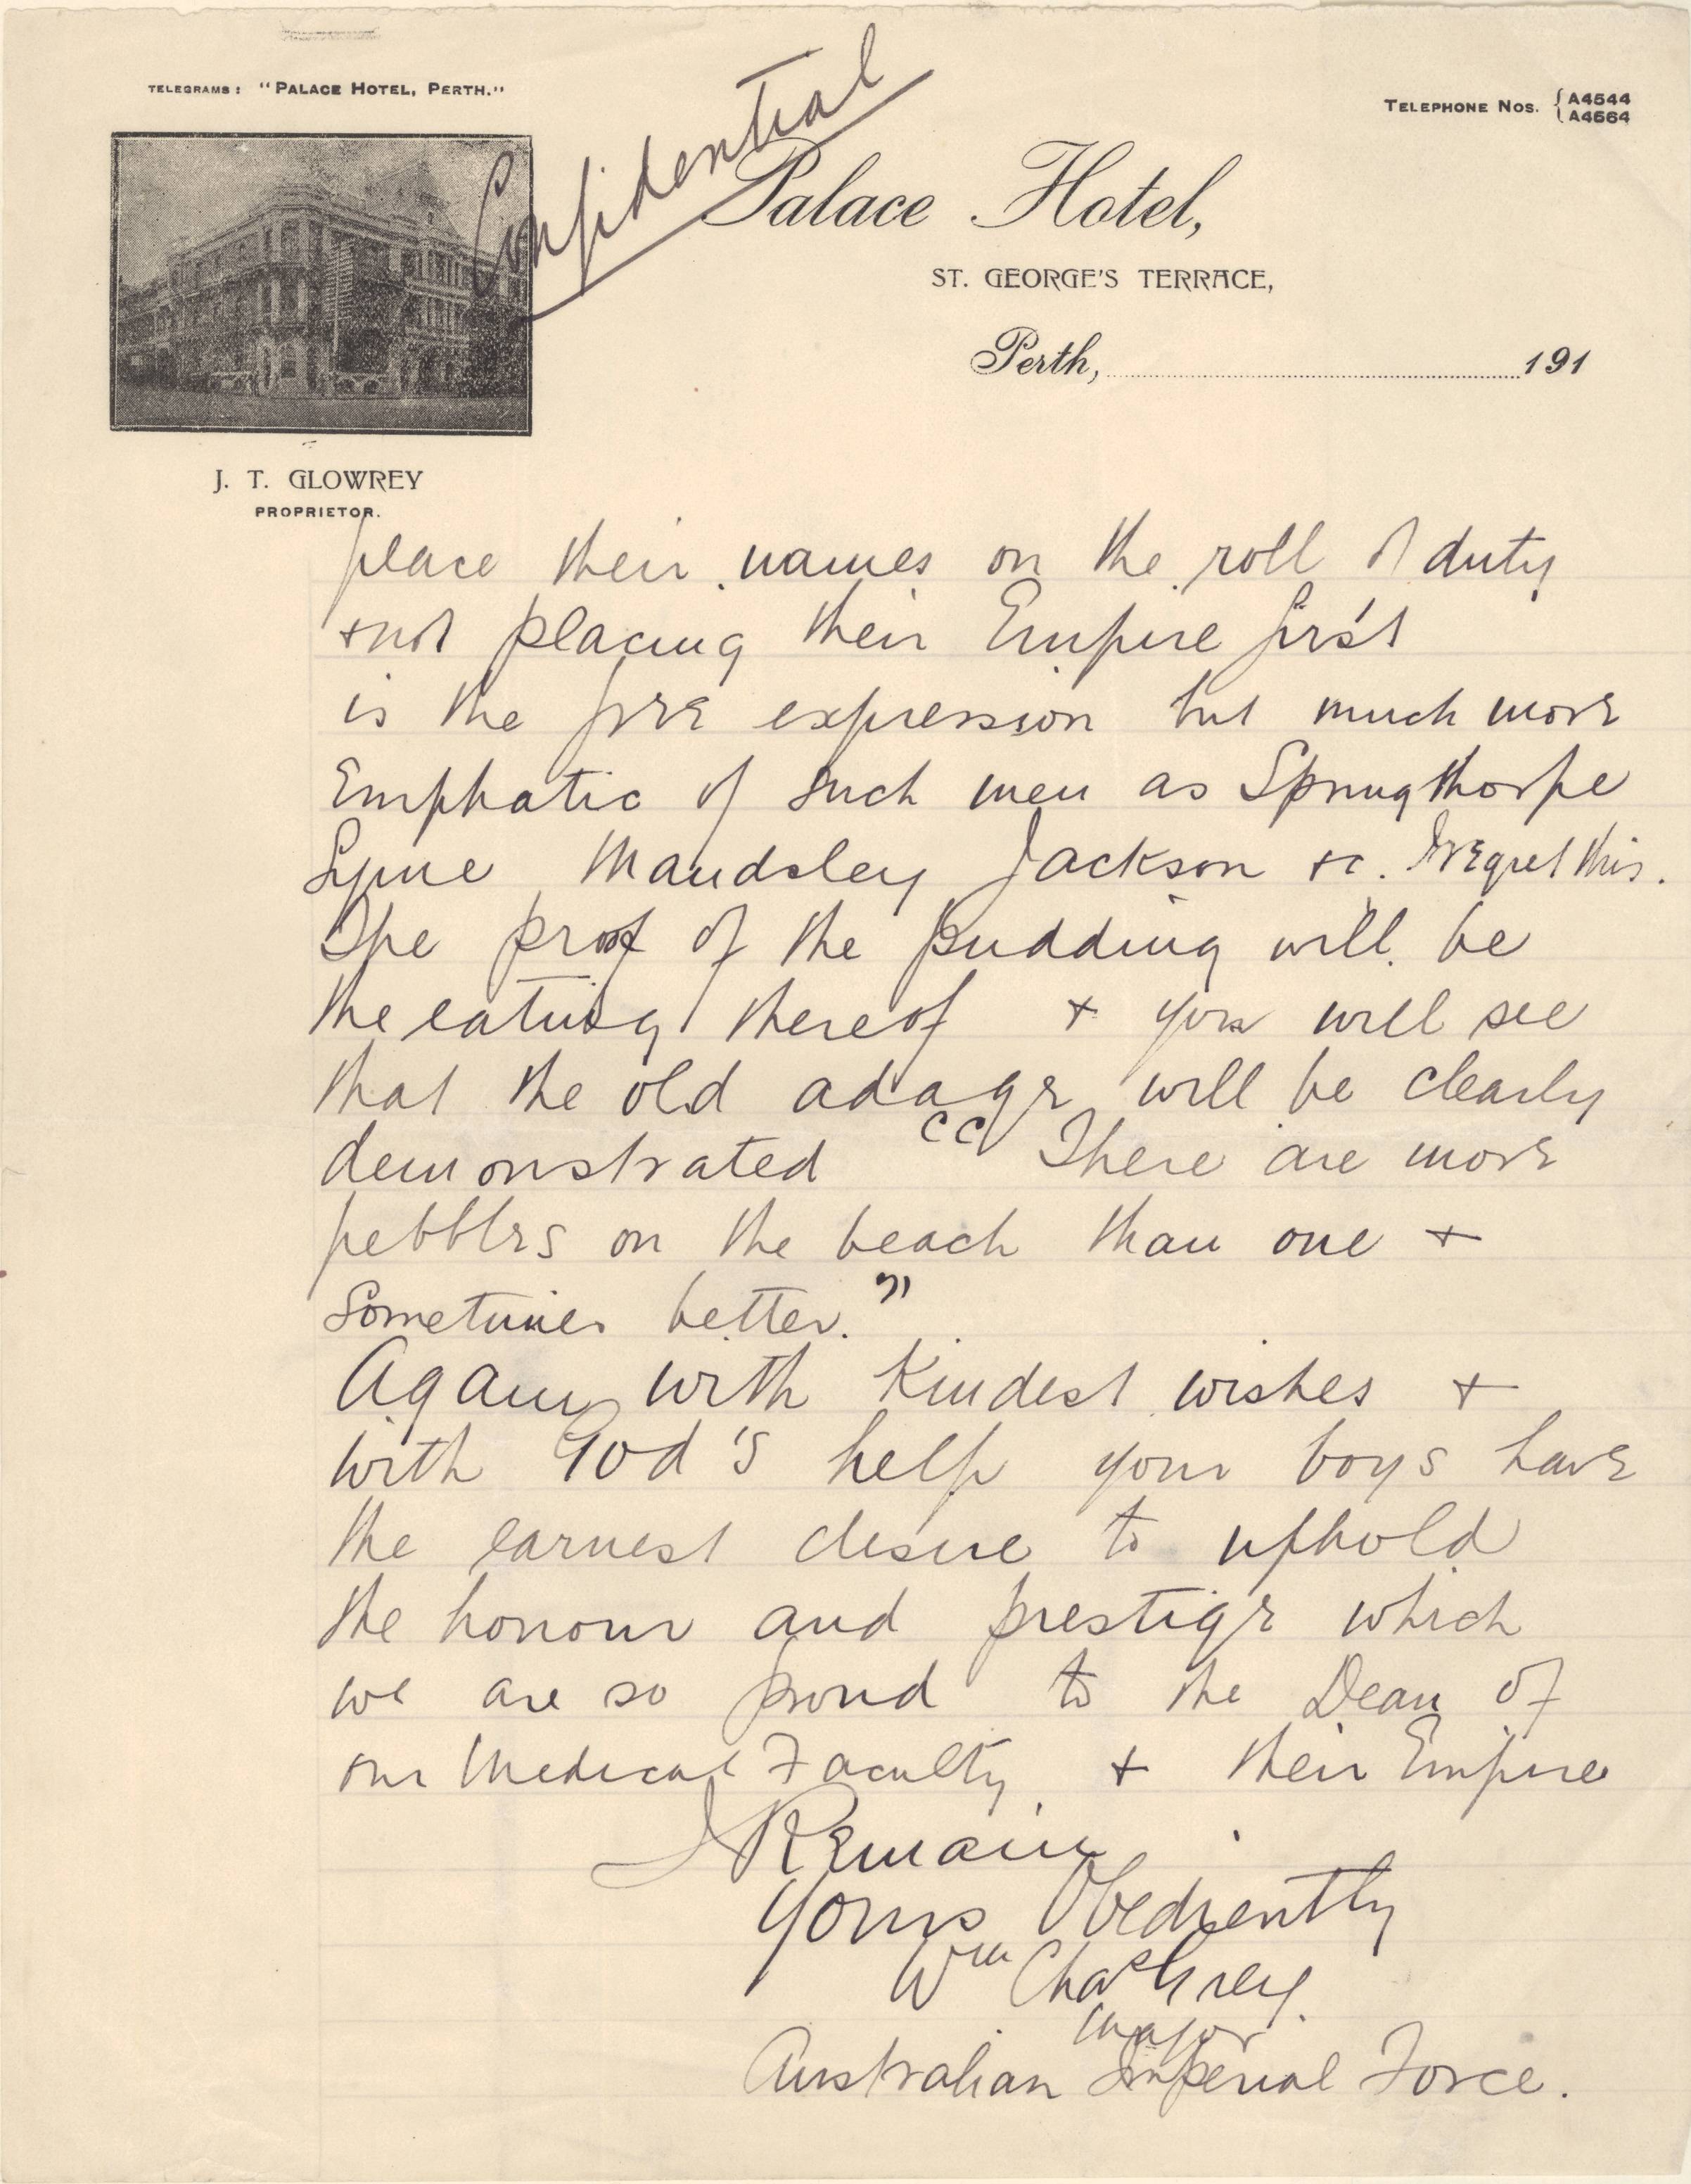 TELEGRAMS: "PALACE HOTEL, PERTH."
TELEPHONE NOS. { A4544
A4564
Confidential
Palace Hotel,
ST. GEORGE'S TERRACE,
Perth, 191
J. T. GLOWREY
PROPRIETOR.
place their names on the roll of duty
+ not placing their Empire first
is the free expression but much more
Emphatic of such men as Springthorpe
Syme Maudsley Jackson +c. I regret this.
The proof of the pudding will be
the eating thereof + you will see
that the old adage will be clearly
demonstrated "There are more
pebbles on the beach than one +
Sometimes better."
Again with Kindest wishes +
with God's help your boys have
the earnest desire to uphold
the honour and prestige which
we are so proud to the Dean of
our Medical Faculty + their Empire
I Remain
Yours Obediently
Wm Chas Grey.
Major
Australian Imperial Force.